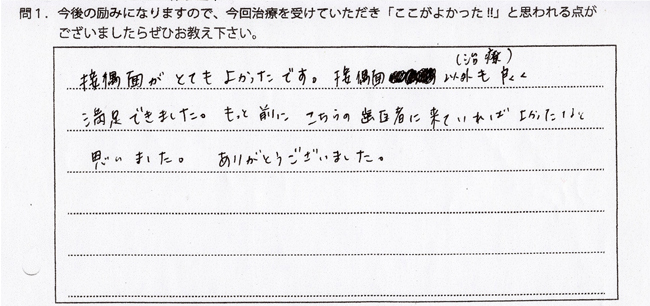 問1．今後の励みになりますので、今回治療を受けていただき「ここがよかった!!」と思われる点が
ございましたらぜひお教え下さい。
(治療)
接偶面がとてもよかったです。接偶面 以外も良く
満足できました。もっと前にこちらの歯医者に来ていればよかったなと
思いました。 ありがとうございました。